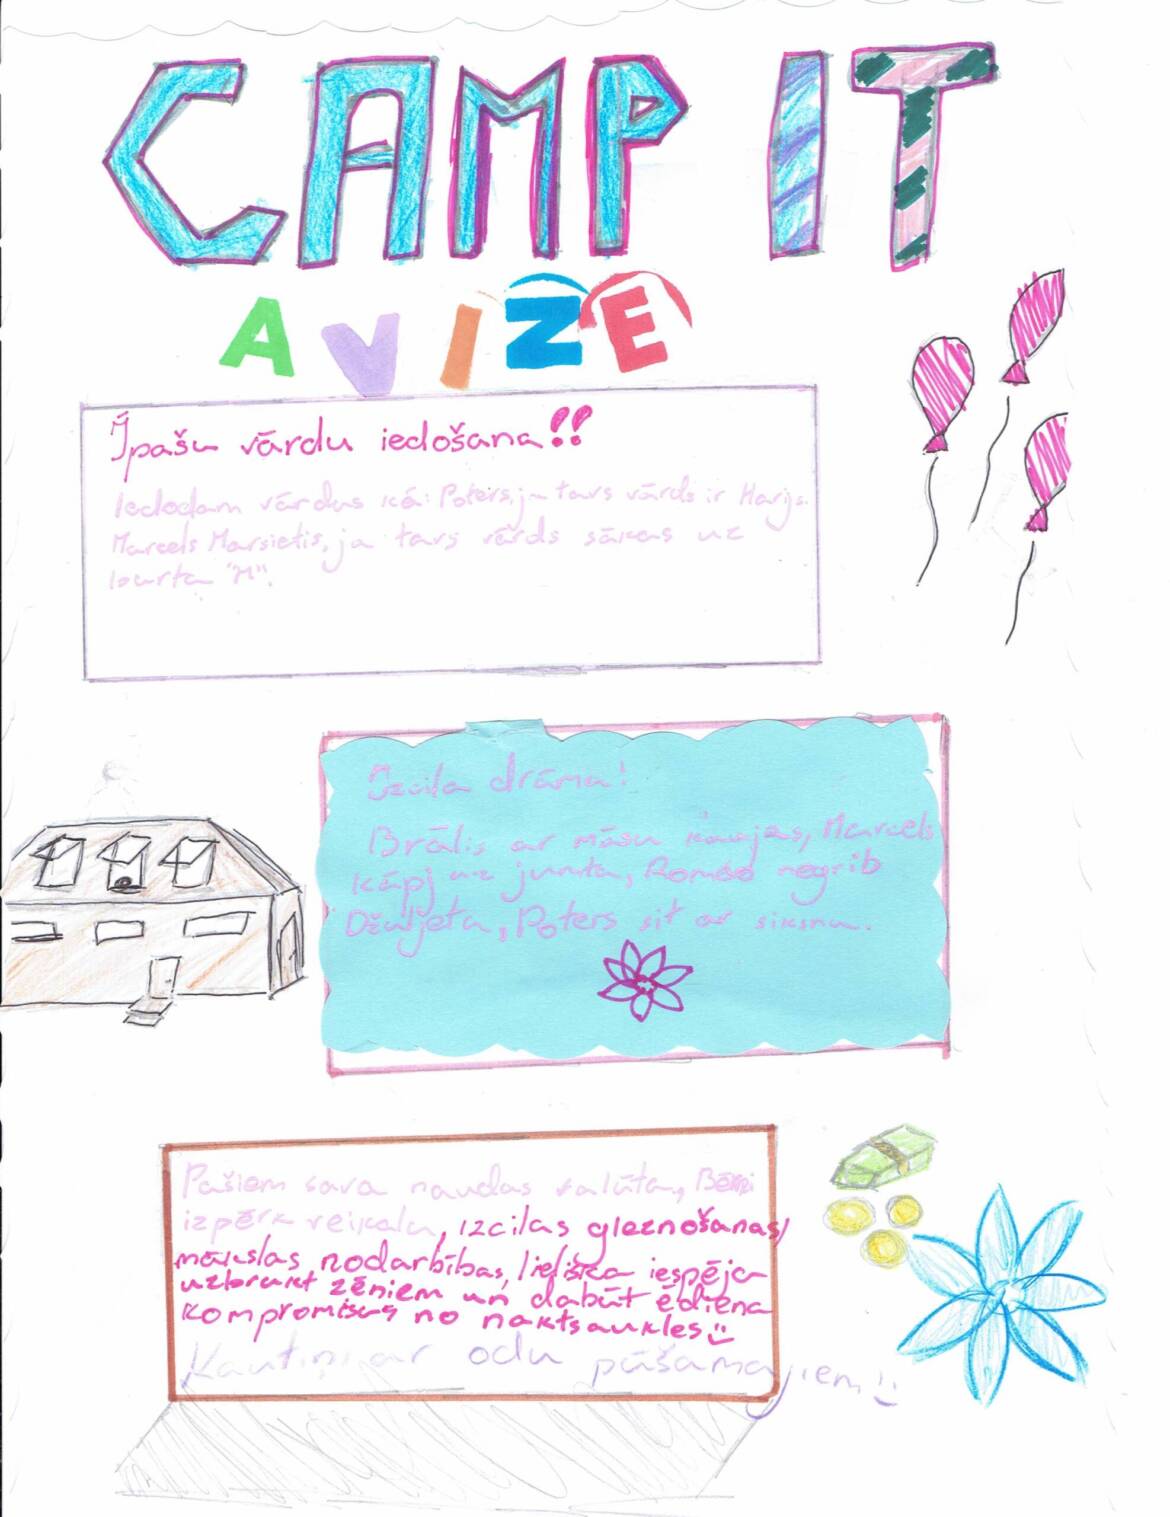 CAMP IT
AVIZE
Īpašu vārdu iedošana!!
Iedodam vārdus kā: Poters, ja tavs vārds ir Harijs.
Marcels Marsietis, ja tavs vārds sākas uz
burta "M".
Izcila drāma!
Brālis ar māsu kaujas, Marcels
kāpj uz jumta, Romeo negrib
Džuljeta, Poters sit ar siksnu.
Pašiem sava naudas valūta, Bērni
izpērk veikalu, izcilas gleznošanas/
mākslas nodarbības, lieliska iespēja
uzbrukt zēniem un dabūt ēdiena
kompromisus no naktsaukles
Kautiņi ar odu pūšamajiem